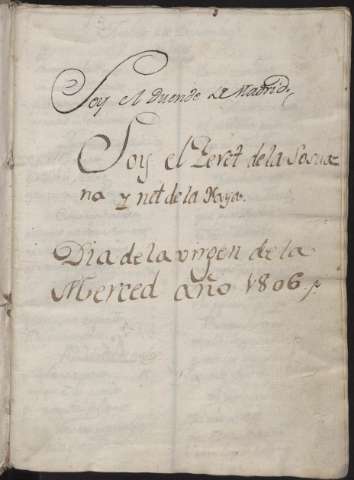 Soy el Duende de Madrid,
Soy el de la
na y de la Haya.
Dia de la virgen de la
Merced año 1806,